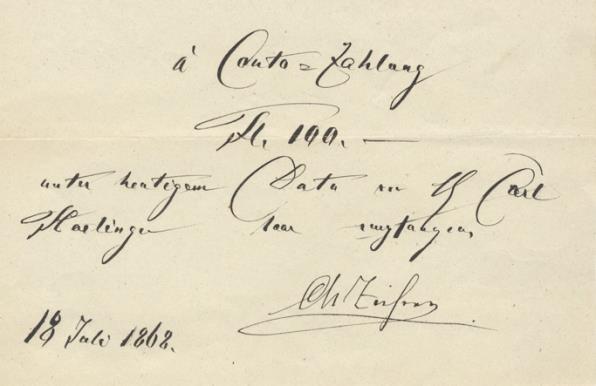 á Conto=Zahlung
Fl. 100.—
unter heutigem Dato von H Carl
Haslinger baar empfangen,
18 Juli 1868.